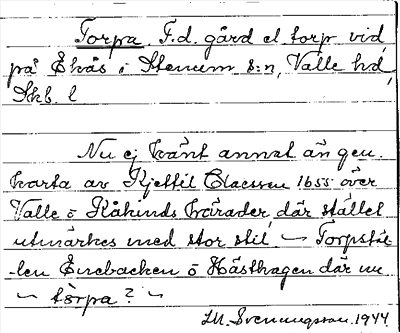 Torpa. F.d. gård el. torp vid,
på Ekås i Stenum s:n, Valle hd,
Skb. l
Nu ej känt annat än gen.
karta av Kjettil Claessen 1655 över
Valle o Kåkinds härader, där stället
utmärkes med stor stil ~ Torpstäl
-len Enebacken o Hästhagen där nu
~ torpa? ~
LM. Svenungsson. 1944